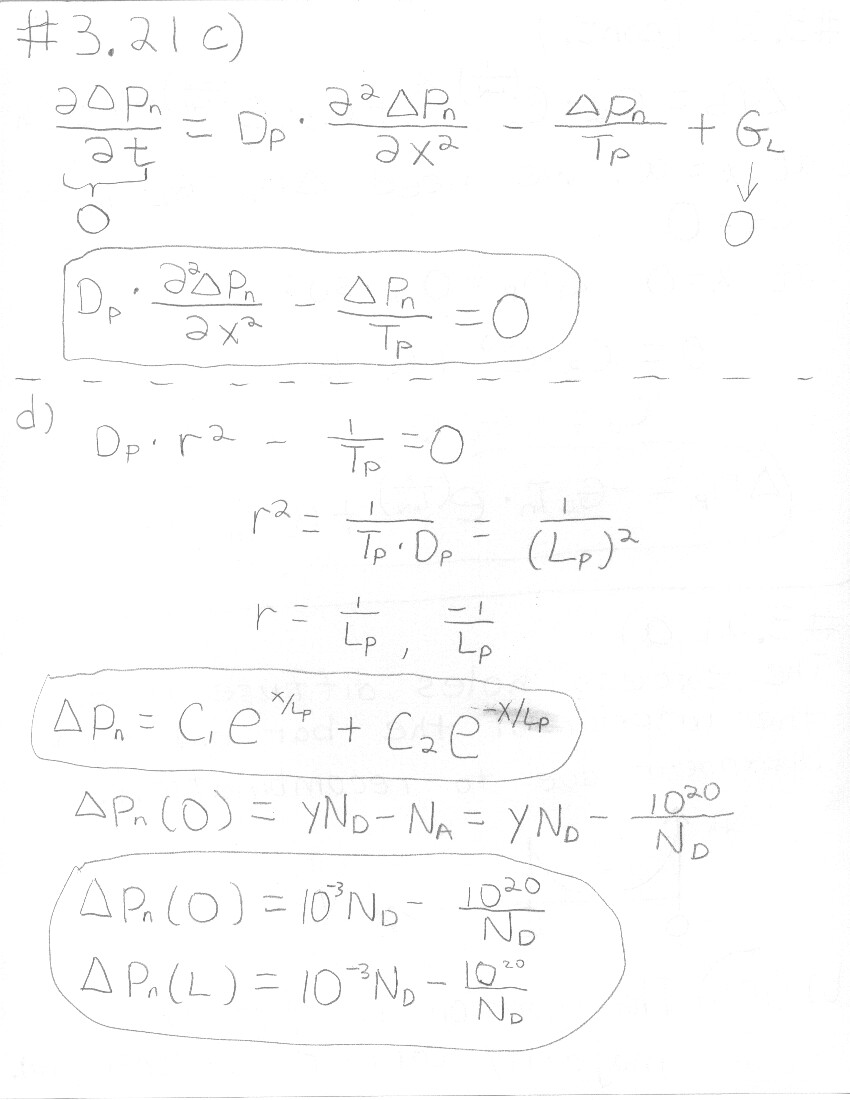 #3.21 c)
∂ΔPn/∂t = Dp · ∂²ΔPn/∂x² - ΔPn/Tp + GL
0 0
Dp · ∂²ΔPn/∂x² - ΔPn/Tp = 0
d) Dp · r² - 1/Tp = 0
r² = 1/(Tp · Dp) = 1/(Lp)²
r = 1/Lp , -1/Lp
ΔPn = C₁e^(x/Lp) + C₂e^(-x/Lp)
ΔPn(0) = yND - NA = yND - 10²⁰/ND
ΔPn(0) = 10⁻³ND - 10²⁰/ND
ΔPn(L) = 10⁻³ND - 10²⁰/ND